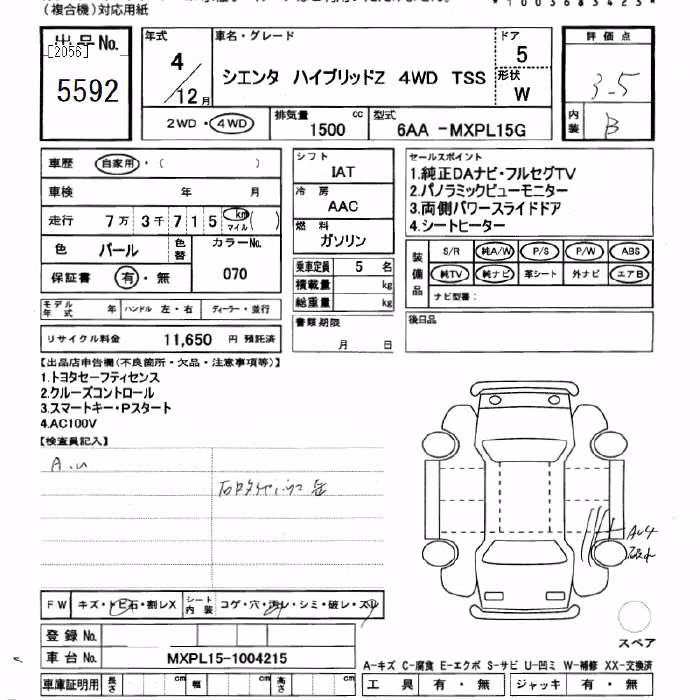 (複合機)対応用紙
*1003683423*
出品No.
[2056]
5592
年式
4/12月
車名・グレード
シエンタ ハイブリッドZ 4WD TSS
ドア
5
形状
W
評価点
3.5
内装
B
2WD・4WD
排気量
1500 cc
型式
6AA -MXPL15G
車歴 自家用・( )
車検 年 月
走行 7万3千715 km マイル( )
色 パール 色替
カラーNo.
070
保証書 有・無
シフト
IAT
冷房
AAC
燃料
ガソリン
乗車定員 5 名
積載量 kg
総重量 kg
書類期限
月 日
セールスポイント
1.純正DAナビ・フルセグTV
2.パノラミックビューモニター
3.両側パワースライドドア
4.シートヒーター
装備品
S/R 純A/W P/S P/W ABS
純TV 純ナビ 革シート 外ナビ エアB
ナビ型番:
後日品
モデル年式 年 ハンドル 左・右 ディーラー・並行
リサイクル料金 11,650 円 預託済
【出品店申告欄(不良箇所・欠品・注意事項等)】
1.トヨタセーフティセンス
2.クルーズコントロール
3.スマートキー・Pスタート
4.AC100V
【検査員記入】
A.U
AU4
FW キズ・トビ石・割レX
シート内装 コゲ・穴・汚レ・シミ・破レ・スレ
登録No.
車台No. MXPL15-1004215
車庫証明用 長さ cm 幅 cm 高さ cm
スペア
A-キズ C-腐食 E-エクボ S-サビ U-凹ミ W-補修 XX-交換済
工具 有・無 ジャッキ 有・無